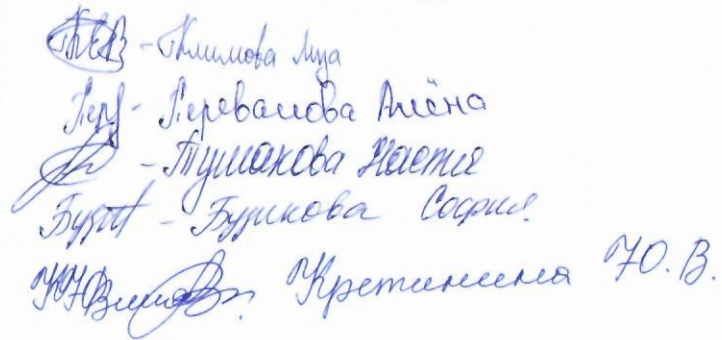 - Климова Лиза
- Перевалова Алёна
- Тушакова Настя
- Бузикова София
Кретинина Ю. В.